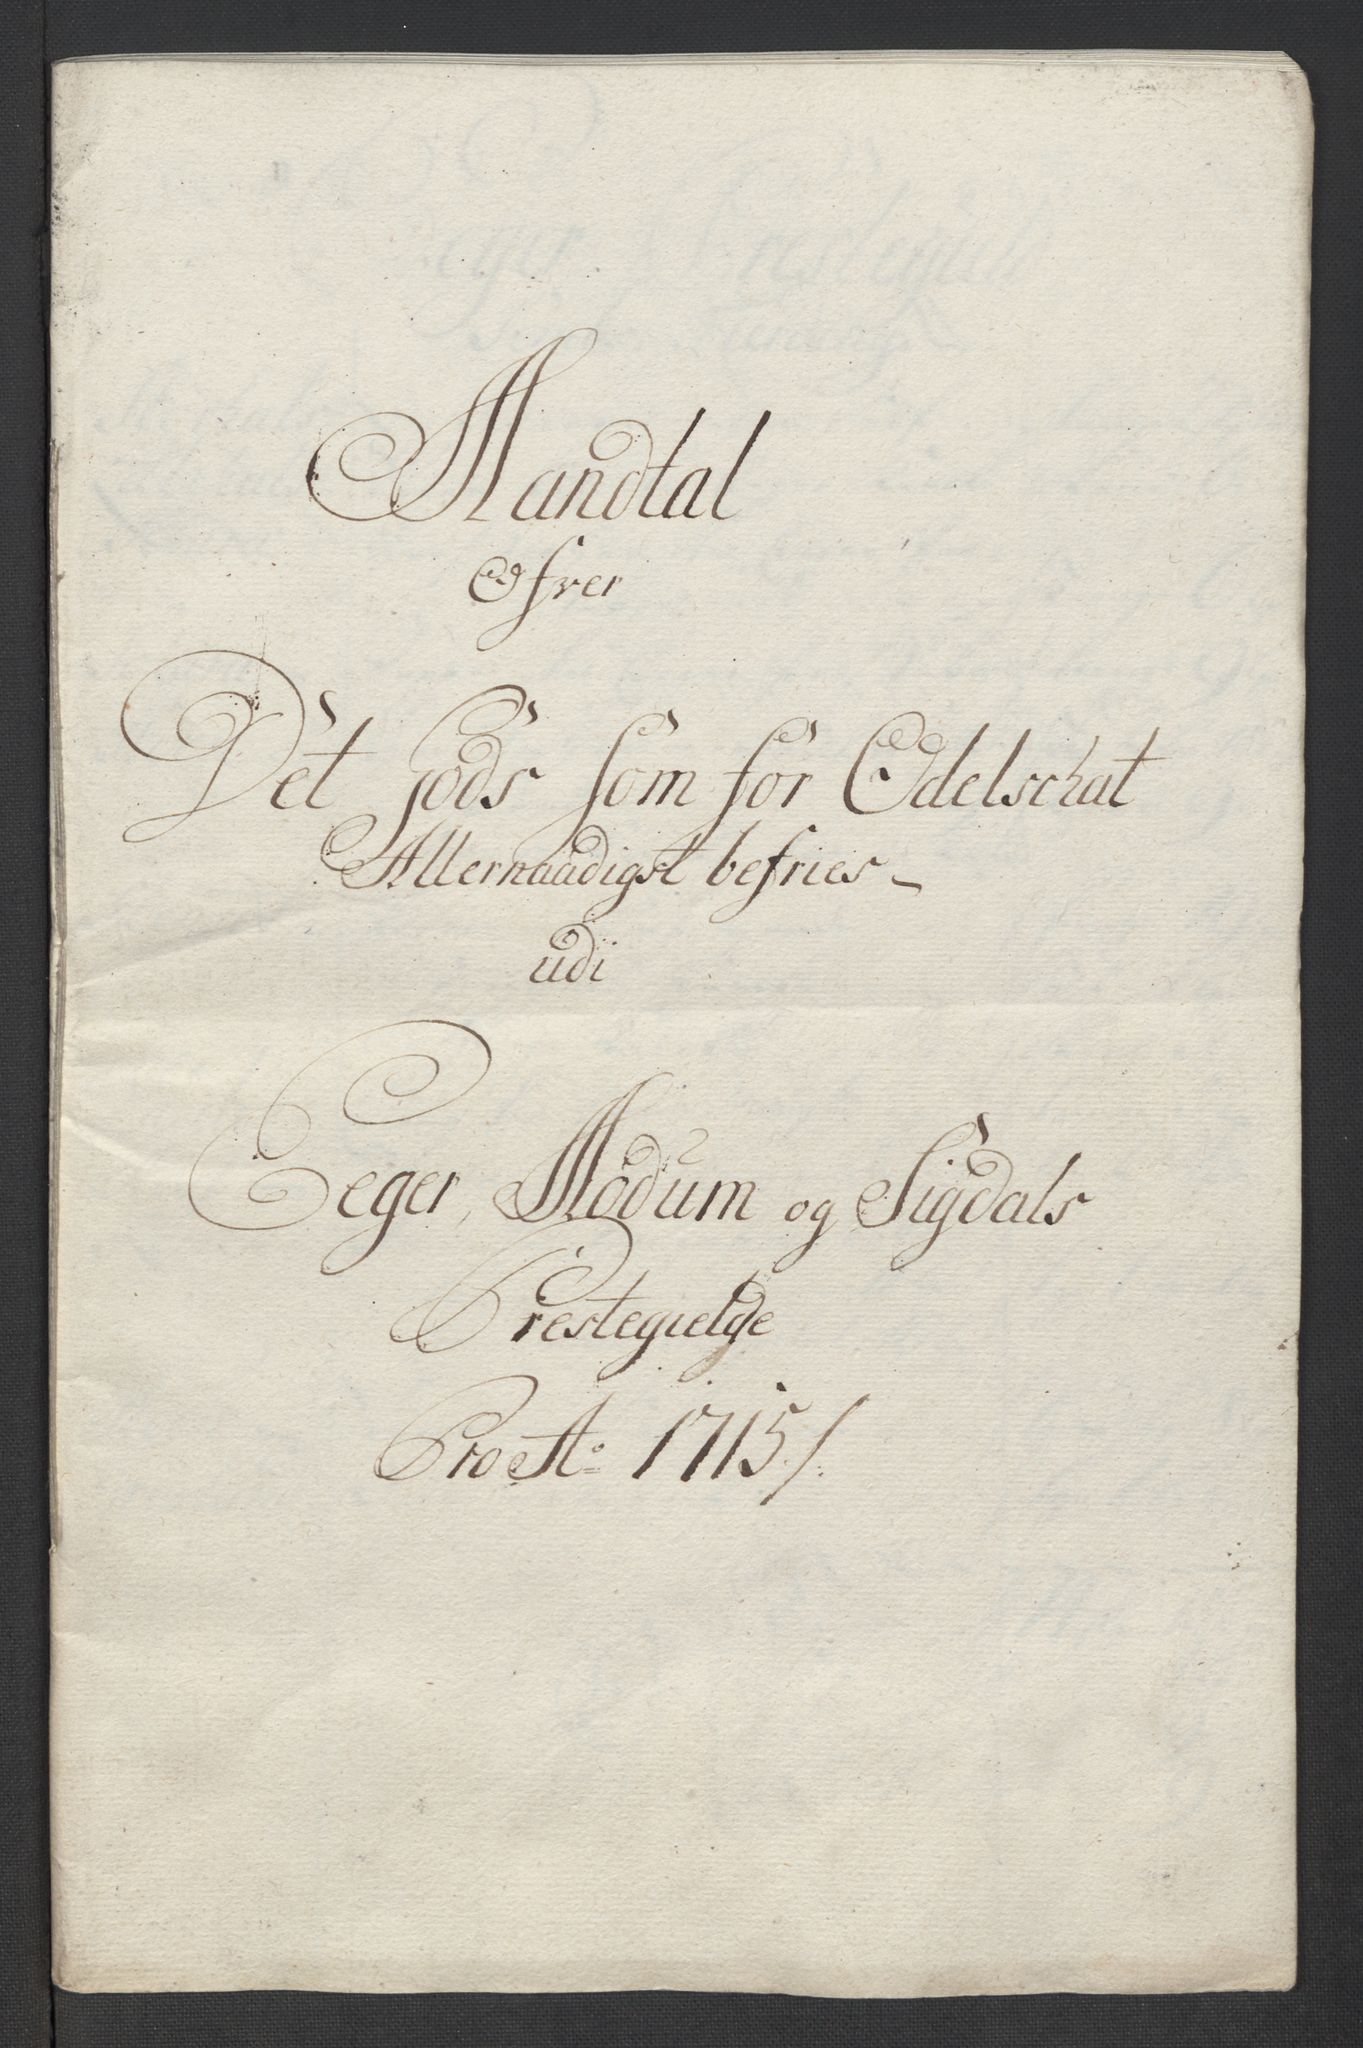 Mandtal
Ofver
Det Gods som for Edelschat
Allernaadigst befries
udi
Eeger, Modum og Sigdals
Prestegielde
Pro Ao 1715/.